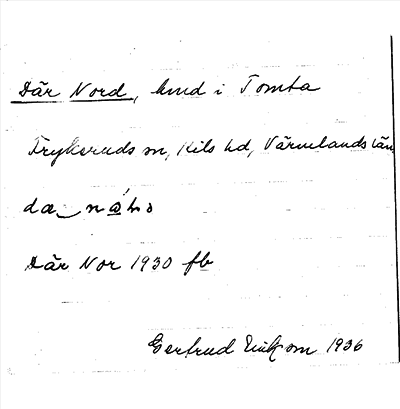 Där Nord, hmd i Tomta
Frykeruds sn, Kils hd, Värmlands län
Där Nor 1930 fb
Gertrud Eriksson 1936